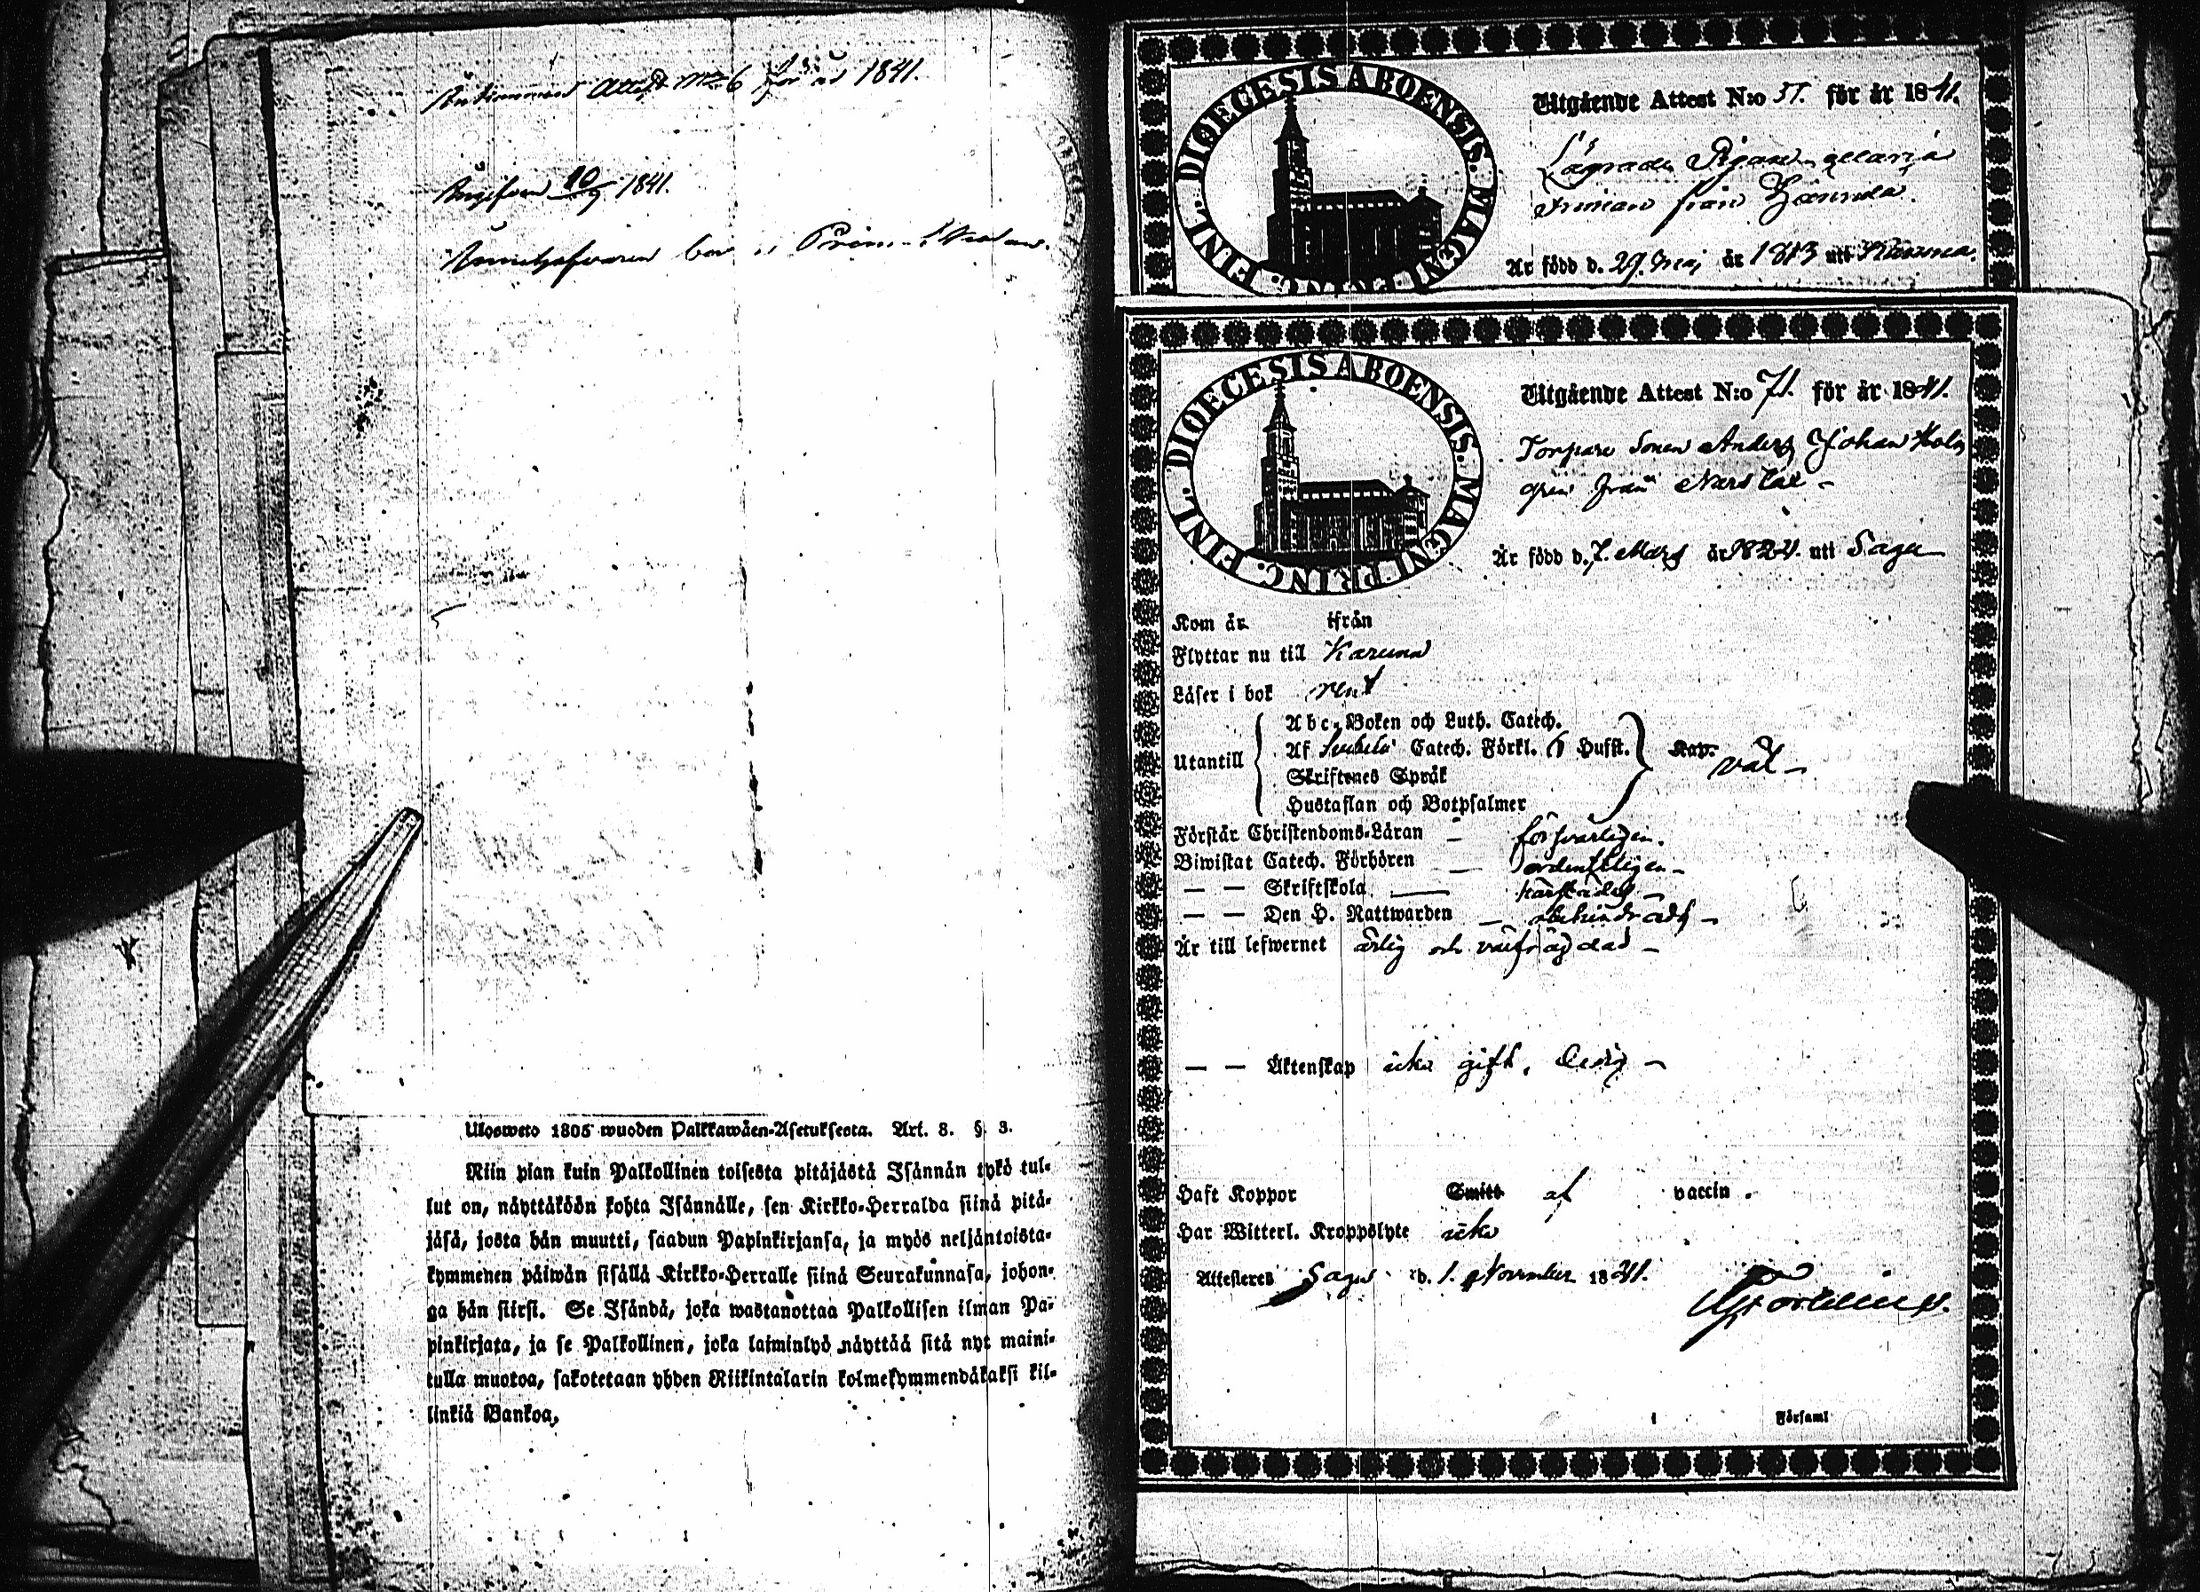 Ankommend Attest No 6 för år 1841.
Angifven 10/9 1841.
Ulosweto 1805 wuoden Palkkawäen-Asetuksesta. Art. 8. § 3.
Niin pian kuin Palkollinen toisesta pitäjästä Isännän tykö tul-
lut on, näyttäköön kohta Isännälle, sen Kirkko-Herralda siinä pitä-
jäsä, josta hän muutti, saadun Papinkirjansa, ja myös neljäntoista-
kymmenen päiwän sisällä Kirkko-Herralle siinä Seurakunnasa, johon-
ga hän siirsi. Se Isändä, joka wastanottaa Palkollisen ilman Pa-
pinkirjata, ja se Palkollinen, joka laiminlyö näyttää sitä nyt maini-
tulla muotoa, sakotetaan yhden Riikintalarin kolmekymmendäkaksi kil-
linkiä Bankoa,
DIOECESIS ABOENSIS. MAGNI PRINC. FINL.
Utgående Attest N:o 57. för år 1841.
Pigan Maria
från
Är född d. 29. Maj år 1813 uti Karuna.
DIOECESIS ABOENSIS. MAGNI PRINC. FINL.
Utgående Attest N:o 71. för år 1841.
Torpare Sonen Anders Johan Holm
gren från
Är född d. 7. Mars år 1824. uti Sagu
Kom år ifrån
Flyttar nu till Karuna
Läser i bok rent
Utantill
Abc-Boken och Luth. Catech.
Af Svebelii Catech. Förkl. 6 Hufst.
Skriftenes Språk
Hustaflan och Botpsalmer
Kap. väl
Förstår Christendoms-Läran försvarligen.
Biwistat Catech. Förhören ordentligen
— — Skriftskola
— — Den H. Nattwarden obehindradt
Är till lefwernet ärlig och välfrägdad
— — Äktenskap icke gift, ledig
Haft Koppor Smitt af vaccin.
Har Witterl. Kroppslyte icke
Attesteres Sagu d. 1. November 1841.
Församl